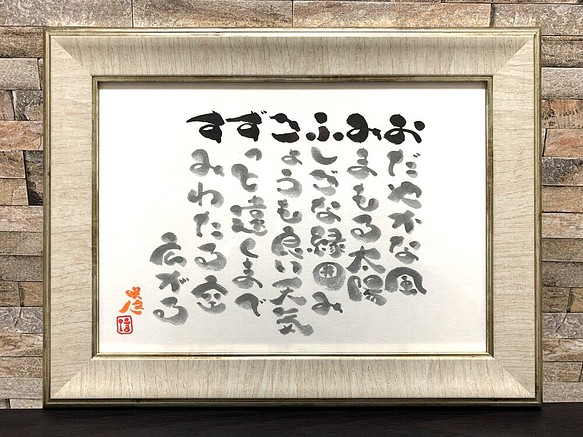 おだやかな風
みまもる太陽
ふしぎな縁囲み
きょうも良い天気
ずっと遠くまで
すみわたる空
広がる